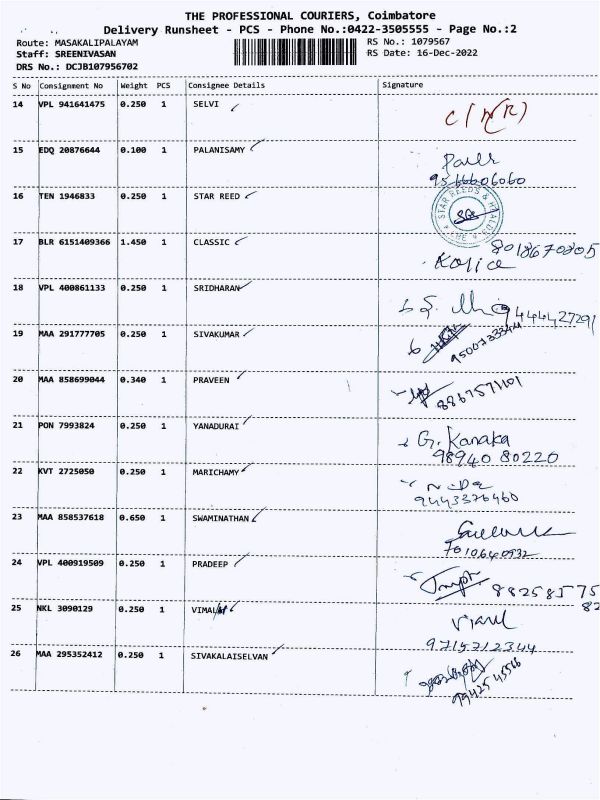 THE PROFESSIONAL COURIERS, Coimbatore
Delivery Runsheet - PCS - Phone No.:0422-3505555 - Page No.:2
Route: MASAKALIPALAYAM RS No.: 1079567
Staff: SREENIVASAN RS Date: 16-Dec-2022
DRS No.: DCJB107956702
S No Consignment No Weight PCS Consignee Details Signature
14 VPL 941641475 0.250 1 SELVI
15 EDQ 20876644 0.100 1 PALANISAMY
9566606060
16 TEN 1946833 0.250 1 STAR REED
STAR REEDS &
17 BLR 6151409366 1.450 1 CLASSIC 8018670805
18 VPL 400861133 0.250 1 SRIDHARAN
9444427291
19 MAA 291777705 0.250 1 SIVAKUMAR
9500733344
20 MAA 858699044 0.340 1 PRAVEEN
8867571101
21 PON 7993824 0.250 1 YANADURAI
G. Kanaka
98940 80220
22 KVT 2725050 0.250 1 MARICHAMY
9443376460
23 MAA 858537618 0.650 1 SWAMINATHAN
7010640932
24 VPL 400919509 0.250 1 PRADEEP
88258575
82
25 NKL 3090129 0.250 1 VIMAL
9715712344
26 MAA 295352412 0.250 1 SIVAKALAISELVAN
9942545566